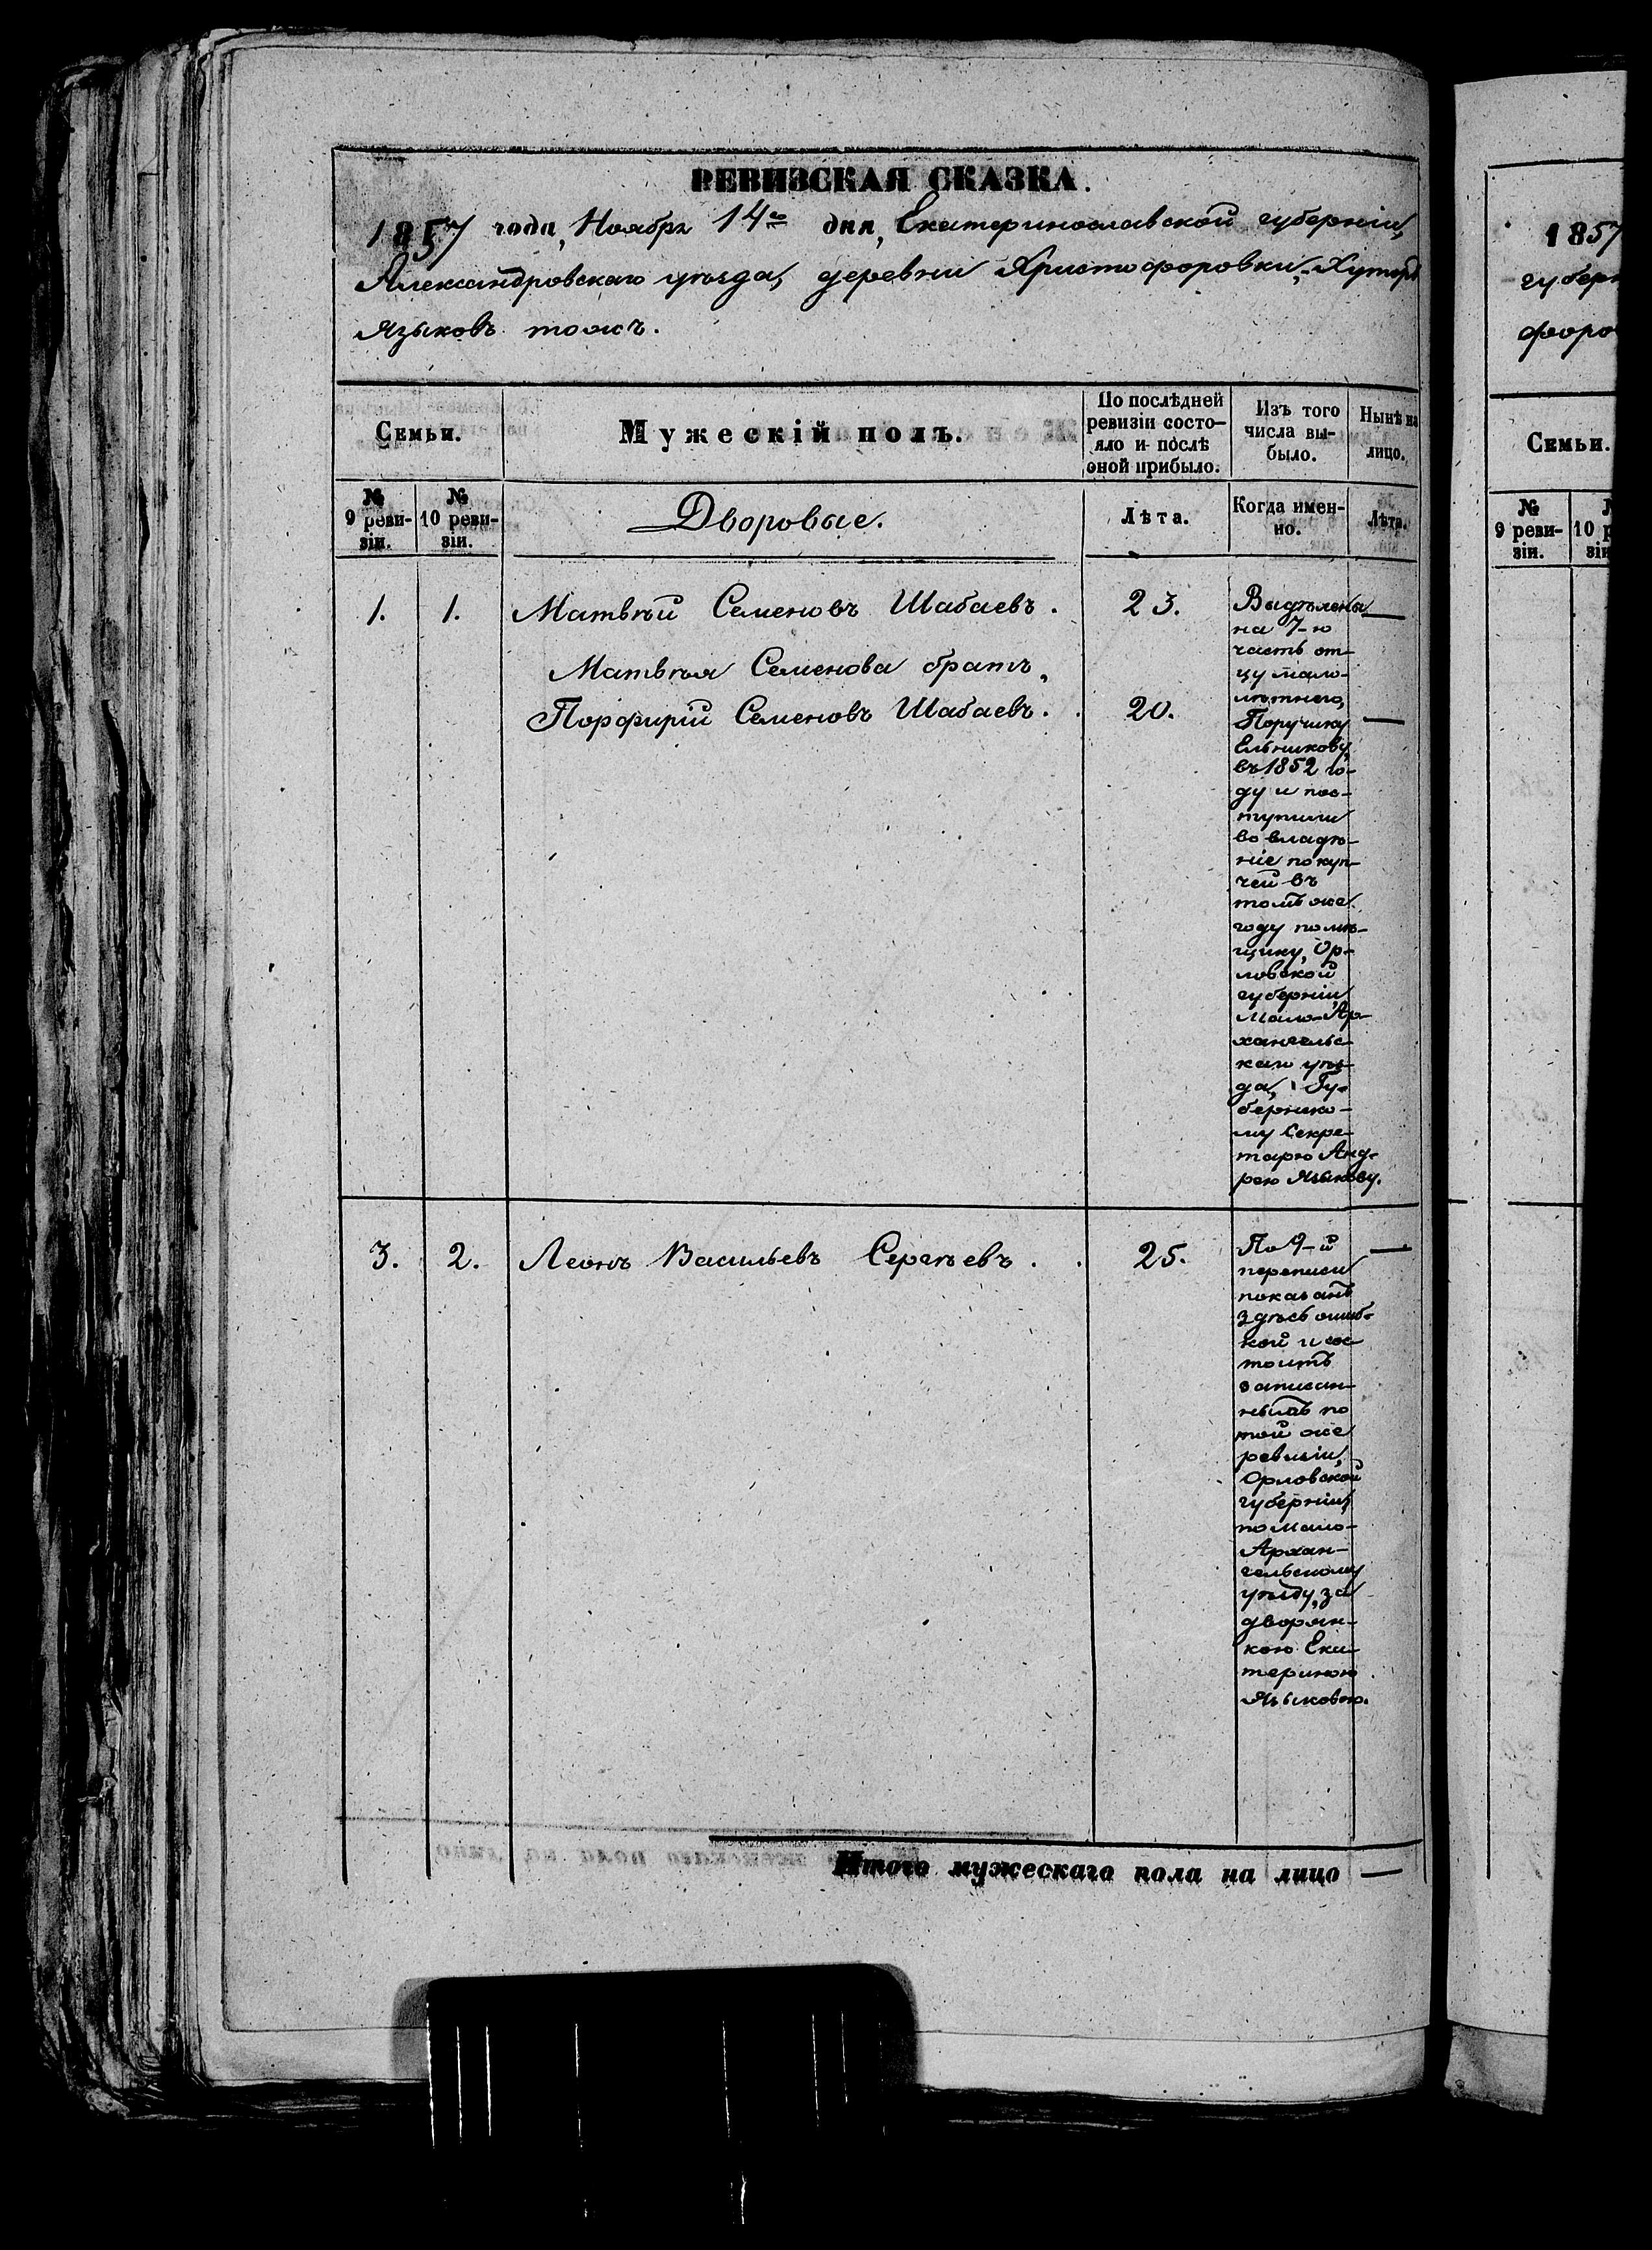 РЕВИЗСКАЯ СКАЗКА.
1857 года, Ноября 14го дня, Екатеринославской губерніи,
Александровскаго уѣзда, деревни Христофоровки, Хуторъ
Языковъ тожъ.
Семьи.
Мужескій полъ.
По послѣдней
ревизіи состо-
яло и послѣ
оной прибыло.
Изъ того
числа вы-
было.
Нынѣ на
лицо.
№
9 реви-
зіи.
№
10 реви-
зіи.
Дворовые.
Лѣта.
Когда имен-
но.
Лѣта.
1. 1. Матвѣй Семеновъ Шабаевъ. 23.
Матвѣя Семенова братъ,
Порфирій Семеновъ Шабаевъ. 20.
Выдѣлены
на 7-ю
часть от-
цу мало-
лѣтнего,
Поручику
Ельникову,
въ 1852 го-
ду и пос-
тупили
во владѣ-
ніе по куп-
чей въ
томъ же
году помѣ-
щику, Ор-
ловской
губерніи,
Мало-Ар-
хангельс-
каго уѣз-
да, Гу-
бернско-
му Секре-
тарю Анд-
рею Языкову.
3. 2. Леонъ Васильевъ Сергѣевъ. 25.
По 9-й
переписи
показанъ
здѣсь ошиб-
кой и сос-
тоитъ
записан-
нымъ по
той же
ревизіи,
Орловской
губерніи,
по Мало-
Архан-
гельскому
уѣзду, за
дворян-
кою Ека-
териною
Языковою.
Итого мужескаго пола на лицо —
1857
губерн
форо
Семьи.
№
9 реви-
зіи.
10 р
зіи